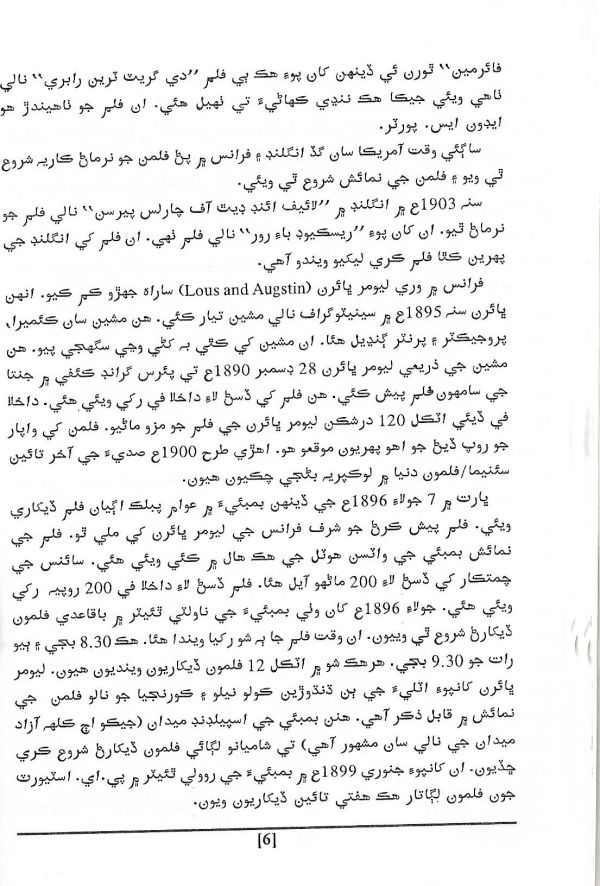 فائرمين“ ٿورن ئي ڏينهن کان پوءِ هڪ ٻي فلم ”دي گريٽ ٽرين رابري“ نالي
ٺاهي ويئي جيڪا هڪ ننڍي ڪهاڻيءَ تي ٺهيل هئي. ان فلم جو ٺاهيندڙ هو
ايڊون ايس. پورٽر.
ساڳئي وقت آمريڪا سان گڏ انگلنڊ ۽ فرانس ۾ پڻ فلمن جو نرماڻ ڪاريہ شروع
ٿي ويو ۽ فلمن جي نمائش شروع ٿي ويئي.
سنہ 1903ع ۾ انگلنڊ ۾ ”لائيف ائنڊ ڊيٿ آف چارلس پيرسن“ نالي فلم جو
نرماڻ ٿيو. ان کان پوءِ ”ريسڪيوڊ باءِ رور“ نالي فلم ٺهي. ان فلم کي انگلنڊ جي
پهرين ڪٿا فلم ڪري ليکيو ويندو آهي.
فرانس ۾ وري ليومر ڀائرن (Lous and Augstin) ساراہ جهڙو ڪم ڪيو. انهن
ڀائرن سنہ 1895ع ۾ سينيٽوگراف نالي مشين تيار ڪئي. هن مشين سان ڪئميرا،
پروجيڪٽر ۽ پرنٽر ڳنڍيل هئا. ان مشين کي ڪٿي بہ کڻي وڃي سگهجي پيو. هن
مشين جي ذريعي ليومر ڀائرن 28 ڊسمبر 1890ع تي پئرس گرانڊ ڪئفي ۾ جنتا
جي سامهون فلم پيش ڪئي. هن فلم کي ڏسڻ لاءِ داخلا في رکي ويئي هئي. داخلا
في ڏيئي اٽڪل 120 درشڪن ليومر ڀائرن جي فلم جو مزو ماڻيو. فلمن کي واپار
جو روپ ڏيڻ جو اهو پهريون موقعو هو. اهڙي طرح 1900ع صديءَ جي آخر تائين
سئنيما/فلمون دنيا ۾ لوڪپريہ بڻجي چڪيون هيون.
ڀارت ۾ 7 جولاءِ 1896ع جي ڏينهن بمبئيءَ ۾ عوام پبلڪ اڳيان فلم ڏيکاري
ويئي. فلم پيش ڪرڻ جو شرف فرانس جي ليومر ڀائرن کي ملي ٿو. فلم جي
نمائش بمبئي جي واٽسن هوٽل جي هڪ هال ۾ ڪئي ويئي هئي. سائنس جي
چمتڪار کي ڏسڻ لاءِ 200 ماڻهو آيل هئا. فلم ڏسڻ لاءِ داخلا في 200 روپيہ رکي
ويئي هئي. جولاءِ 1896ع کان وٺي بمبئيءَ جي ناولٽي ٿئيٽر ۾ باقاعدي فلمون
ڏيکارڻ شروع ٿي وييون. ان وقت فلم جا ٻہ شو رکيا ويندا هئا. هڪ 8.30 بجي ۽ ٻيو
رات جو 9.30 بجي. هرهڪ شو ۾ اٽڪل 12 فلمون ڏيکاريون وينديون هيون. ليومر
ڀائرن کانپوءِ اٽليءَ جي ٻن ڌنڌوڙين ڪولو نيلو ۽ ڪورنجيا جو نالو فلمن جي
نمائش ۾ قابل ذڪر آهي. هنن بمبئي جي اسپيلڊنڊ ميدان (جيڪو اڄ ڪلهہ آزاد
ميدان جي نالي سان مشهور آهي) تي شاميانو لڳائي فلمون ڏيکارڻ شروع ڪري
ڇڏيون. ان کانپوءِ جنوري 1899ع ۾ بمبئيءَ جي روولي ٿئيٽر ۾ پي.اي. اسٽيورٽ
جون فلمون لڳاتار هڪ هفتي تائين ڏيکاريون ويون.
[6]